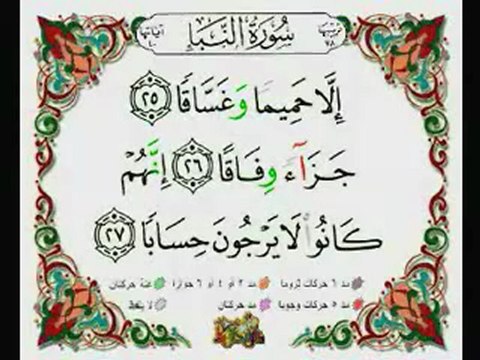 ترتيبها ٧٨ سُورَةُ النَّبَإِ آياتها ٤٠
إِلَّا حَمِيمًا وَغَسَّاقًا ٢٥
جَزَآءً وِفَاقًا ٢٦ إِنَّهُمْ
كَانُوا۟ لَا يَرْجُونَ حِسَابًا ٢٧
مد ٦ حركات لزوما مد ٢ أو ٤ أو ٦ جوازا غنة حركتان
مد ٥ حركات وجوبا مد حركتان لا يلفظ